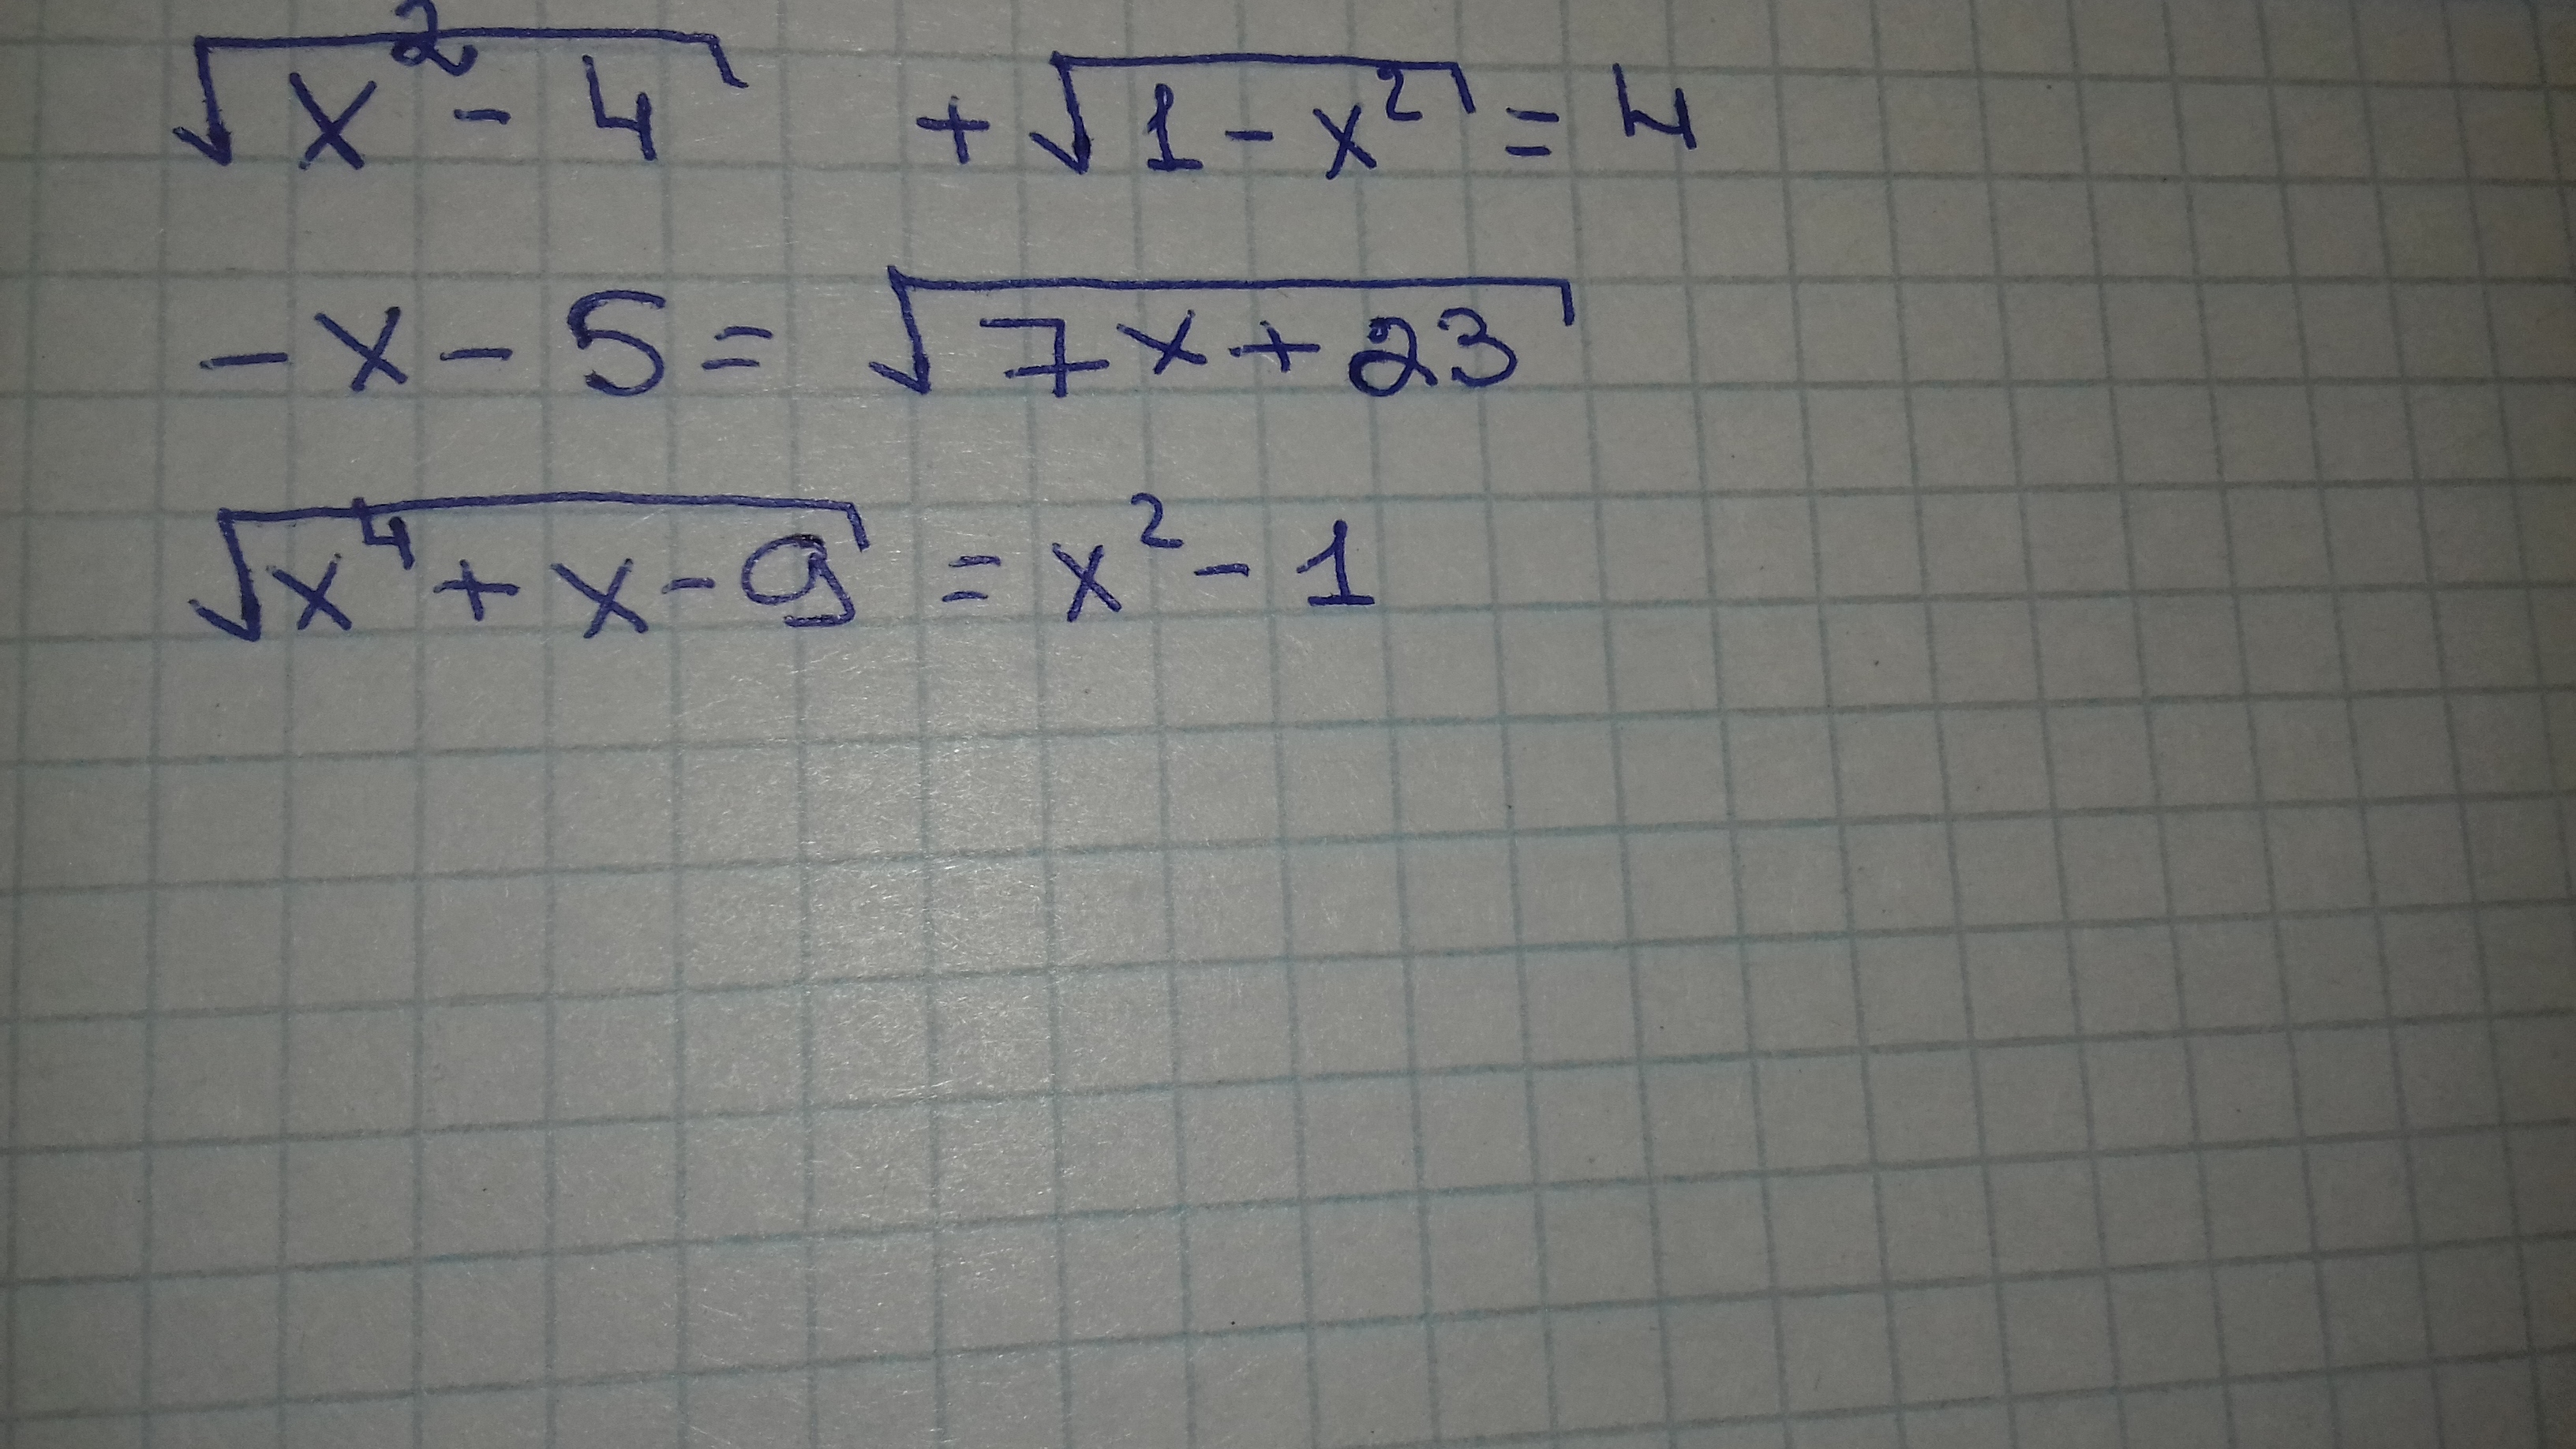 √(x² - 4) + √(1 - x²) = 4
-x - 5 = √(7x + 23)
√(x⁴ + x - 9) = x² - 1